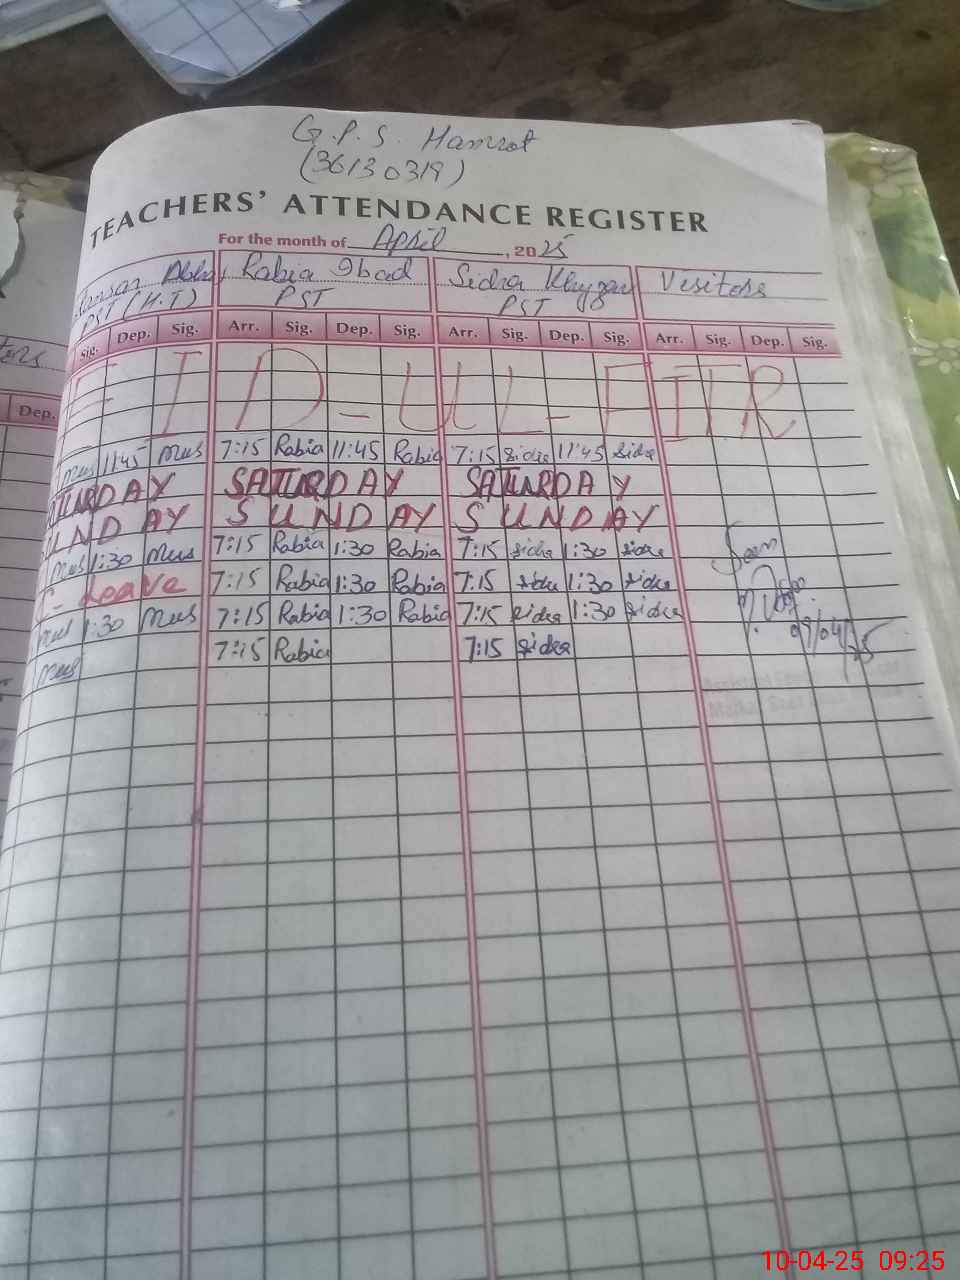 G.P.S. Hamrot
(36130319)
TEACHERS' ATTENDANCE REGISTER
For the month of April, 2025
Rabia Ibad Sidra Visitors
PST (H.T) PST PST
Sig. Dep. Sig. Arr. Sig. Dep. Sig. Arr. Sig. Dep. Sig. Arr. Sig. Dep. Sig.
Dep.
EID-UL-FITR
Mus 11:45 Mus 7:15 Rabia 11:45 Rabia 7:15 Sidra 11:45 Sidra
TURDAY SATURDAY SATURDAY
UNDAY SUNDAY SUNDAY
Mus 1:30 Mus 7:15 Rabia 1:30 Rabia 7:15 Sidra 1:30 Sidra
C- Leave 7:15 Rabia 1:30 Rabia 7:15 Sidra 1:30 Sidra
Mus 1:30 Mus 7:15 Rabia 1:30 Rabia 7:15 Sidra 1:30 Sidra
Mus 7:15 Rabia 7:15 Sidra
Seen
09/04/25
10-04-25 09:25